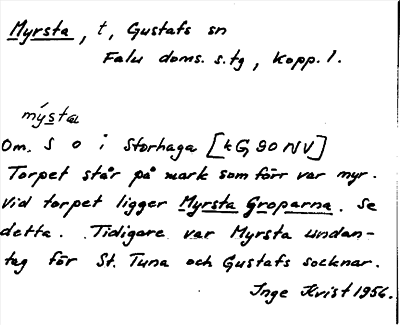 Myrsta, t, Gustafs sn
Falu doms. s.tg, Kopp. l.
mýstæ
Om. S o i Storhaga [kG 90 NV]
Torpet står på mark som förr var myr.
Vid torpet ligger Myrsta Groparna. Se
detta. Tidigare var Myrsta undan-
tag för St. Tuna och Gustafs socknar.
Inge Kvist 1956.